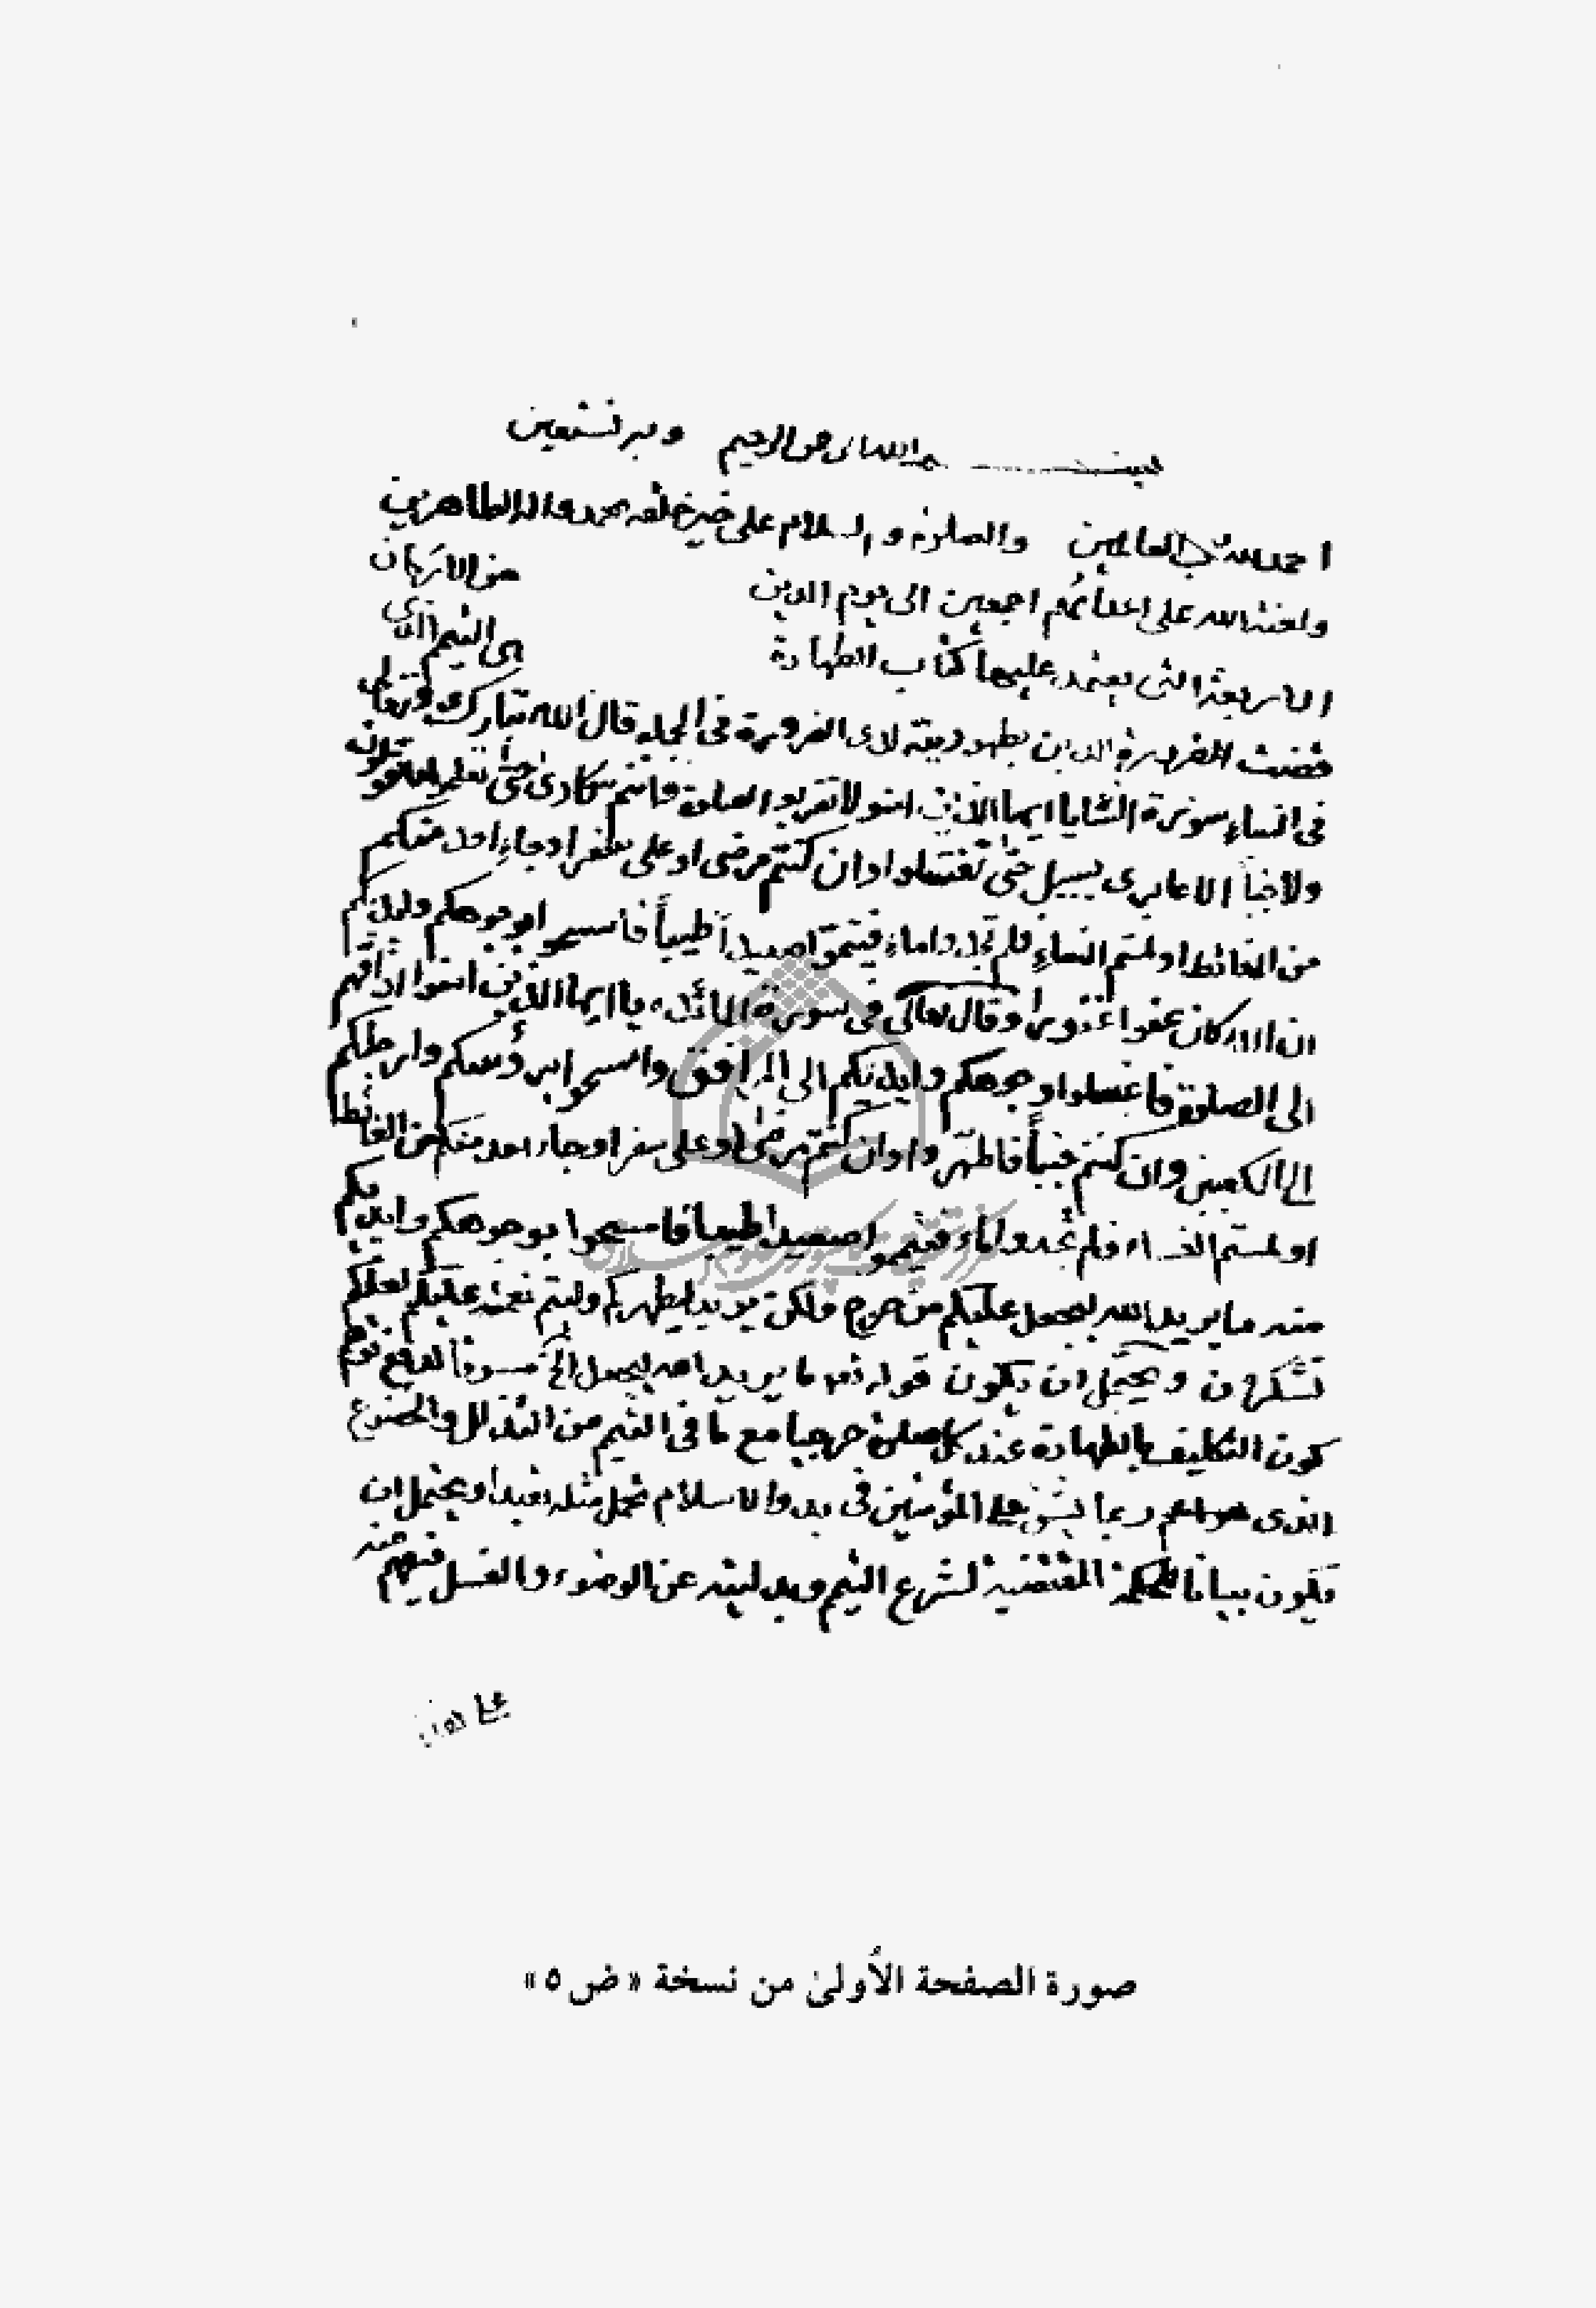 بسم الله الرحمن الرحيم وبه نستعين
الحمد لله رب العالمين والصلوة والسلام على خير خلقه محمد واله الطاهرين
ولعنة الله على اعدائهم اجمعين الى يوم الدين من الاركان
الاربعة التى يعتمد عليها كتاب الطهارة فى التيمم الذى
قضت الضرورة الدين بطهوريته لدى الضرورة فى الجملة قال الله تبارك وتعالى
فى النساء يا ايها الذين امنوا لا تقربوا الصلوة وانتم سكارى حتى تعلموا ما تقولون
ولا جنباً الا عابرى سبيل حتى تغتسلوا وان كنتم مرضى او على سفر او جاء احد منكم
من الغائط او لمستم النساء فلم تجدوا ماء فتيمموا صعيداً طيباً فامسحوا بوجوهكم وايديكم
ان الله كان عفوا غفورا وقال تعالى فى سورة المائدة يا ايها الذين امنوا اذا قمتم
الى الصلوة فاغسلوا وجوهكم وايديكم الى المرافق وامسحوا برؤسكم وارجلكم
الى الكعبين وان كنتم جنباً فاطهروا وان كنتم مرضى او على سفر او جاء احد منكم من الغائط
او لمستم النساء فلم تجدوا ماء فتيمموا صعيداً طيباً فامسحوا بوجوهكم وايديكم
منه ما يريد الله ليجعل عليكم من حرج ولكن يريد ليطهركم وليتم نعمته عليكم لعلكم
تشكرون ويحتمل ان يكون قوله تعالى ما يريد الله ليجعل الخ مسوقاً لدفع توهم
كون التكليف بالطهارة عند كل صلوة حرجيا مع ما فى التيمم من التذلل والخضوع
الذى ربما يشق على المؤمنين فى بدو الاسلام تحمل مثله تعبدا ويحتمل ان
يكون بيانا للحكمة المقتضية لشرع التيمم وبدليته عن الوضوء والغسل فيفهم منه
صورة الصفحة الأولىٰ من نسخة « ض ٥ »